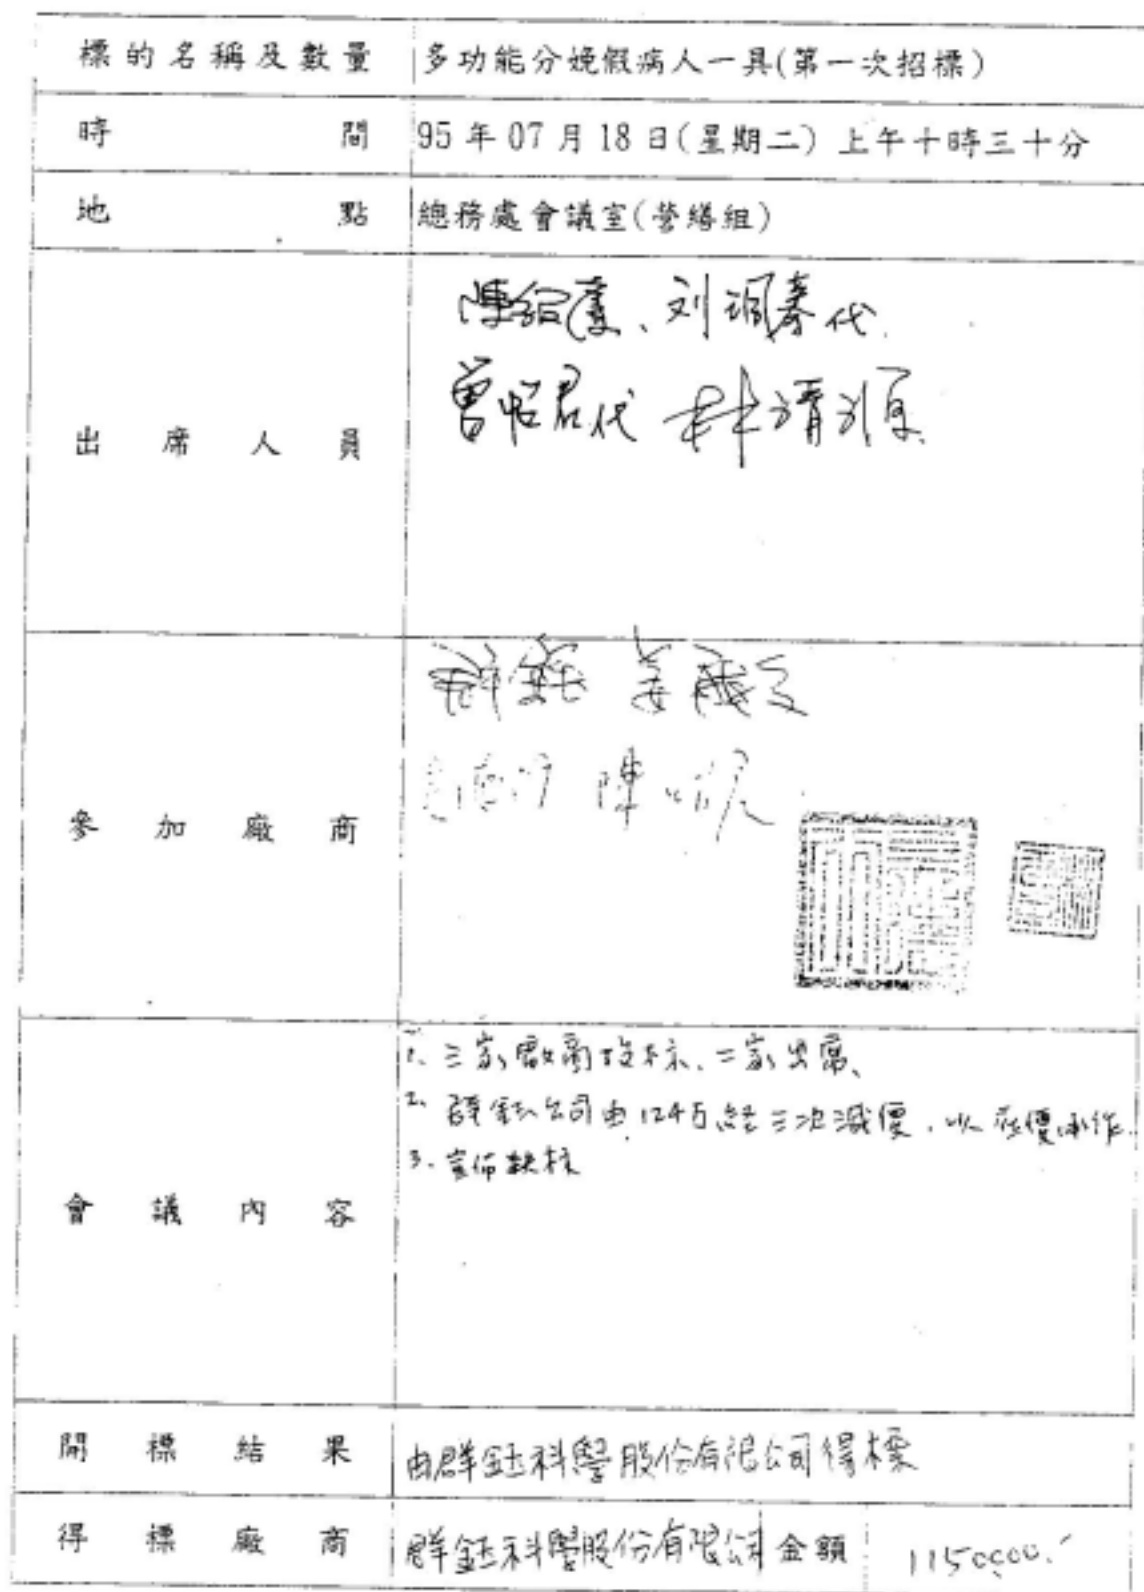 標的名稱及數量 多功能分娩假病人一具(第一次招標)
時間 95年07月18日(星期二) 上午十時三十分
地點 總務處會議室(營繕組)
出席人員
陳 、刘 代
曾 君代 林清源
參加廠商
群鈺 姜
陳
會議內容
1. 三家廠商投标、二家出席、
2. 群鈺公司由124万經三次減價、以底價承作.
3. 宣佈決标
開標結果 由群鈺科學股份有限公司得標
得標廠商 群鈺科學股份有限公司 金額 1150000.